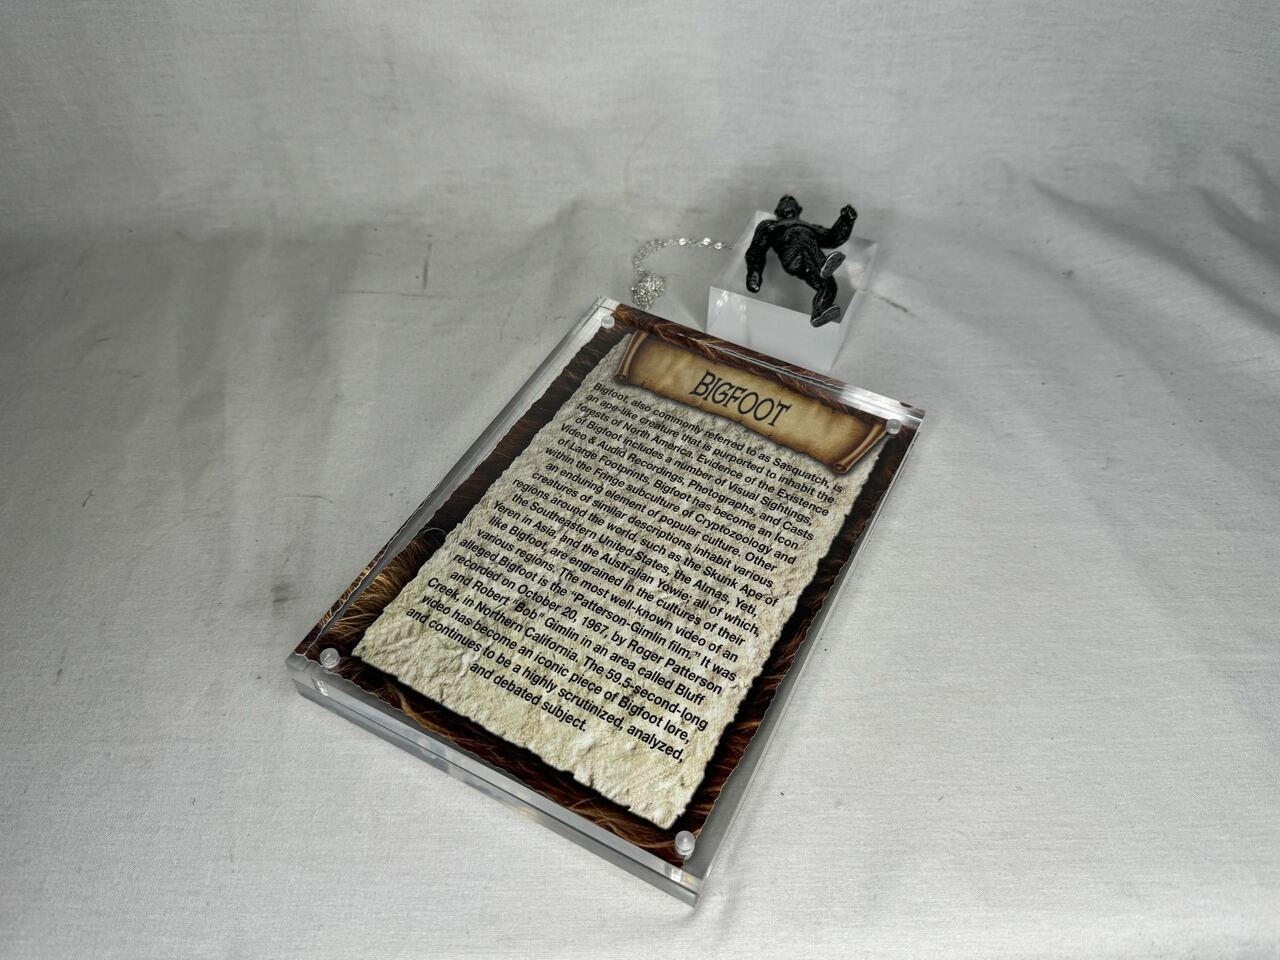 BIGFOOT
Bigfoot, also commonly referred to as Sasquatch, is
an ape-like creature that is purported to inhabit the
forests of North America. Evidence of the Existence
of Bigfoot includes a number of Visual Sightings,
Video & Audio Recordings, Photographs, and Casts
of Large Footprints. Bigfoot has become an Icon
within the Fringe subculture of Cryptozoology and
an enduring element of popular culture. Other
creatures of similar descriptions inhabit various
regions around the world, such as the Skunk Ape of
the Southeastern United States, the Almas, Yeti,
Yeren in Asia, and the Australian Yowie; all of which,
like Bigfoot, are engrained in the cultures of their
various regions. The most well-known video of an
alleged Bigfoot is the "Patterson-Gimlin film." It was
recorded on October 20, 1967, by Roger Patterson
and Robert "Bob" Gimlin in an area called Bluff
Creek, in Northern California. The 59.5-second-long
video has become an iconic piece of Bigfoot lore,
and continues to be a highly scrutinized, analyzed,
and debated subject.